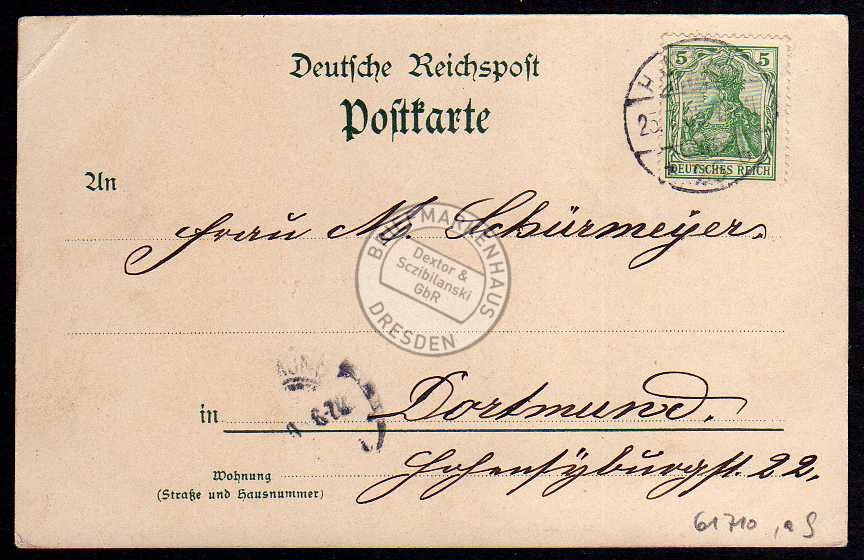 Deutsche Reichspost
Postkarte
5 5
DEUTSCHES REICH
An
Frau M. Schürmeyer.
BRIEFMARKENHAUS
Dextor &
Sczibilanski
GbR
DRESDEN
6-7N
in Dortmund.
Wohnung
(Straße und Hausnummer)
Hohensyburgst. 22.
61710